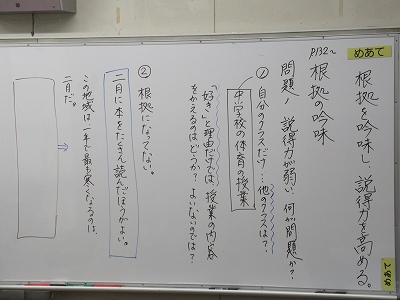 めあて
根拠を吟味し、説得力を高める。
P132~
根拠の吟味
問題ノ 説得力が弱い。何が問題か?
① 自分のクラスだけ…他のクラスは?
中学校の体育の授業
「好き」と理由だけでは、授業の内容
をかえるのはどうか?よいないのでは?
② 根拠になってない。
二月に本をたくさん読んだほうがよい。
この地域は一年で最も寒くなるのは、
二月だ。
めあて